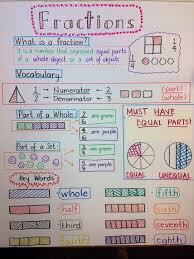 Fractions
What is a fraction?
It is a number that expresses equal parts
of a whole object or a set of objects
1/4
1/2
Vocabulary
1/2 → Numerator ← 2 (part)
→ Denominator ← 3
Part of a Whole
are green
are purple
Part of a Set
are green
are purple
MUST HAVE
EQUAL PARTS!
EQUAL
UNEQUAL
Key Words
whole
half
third
fourth
fifth
sixth
seventh
eighth